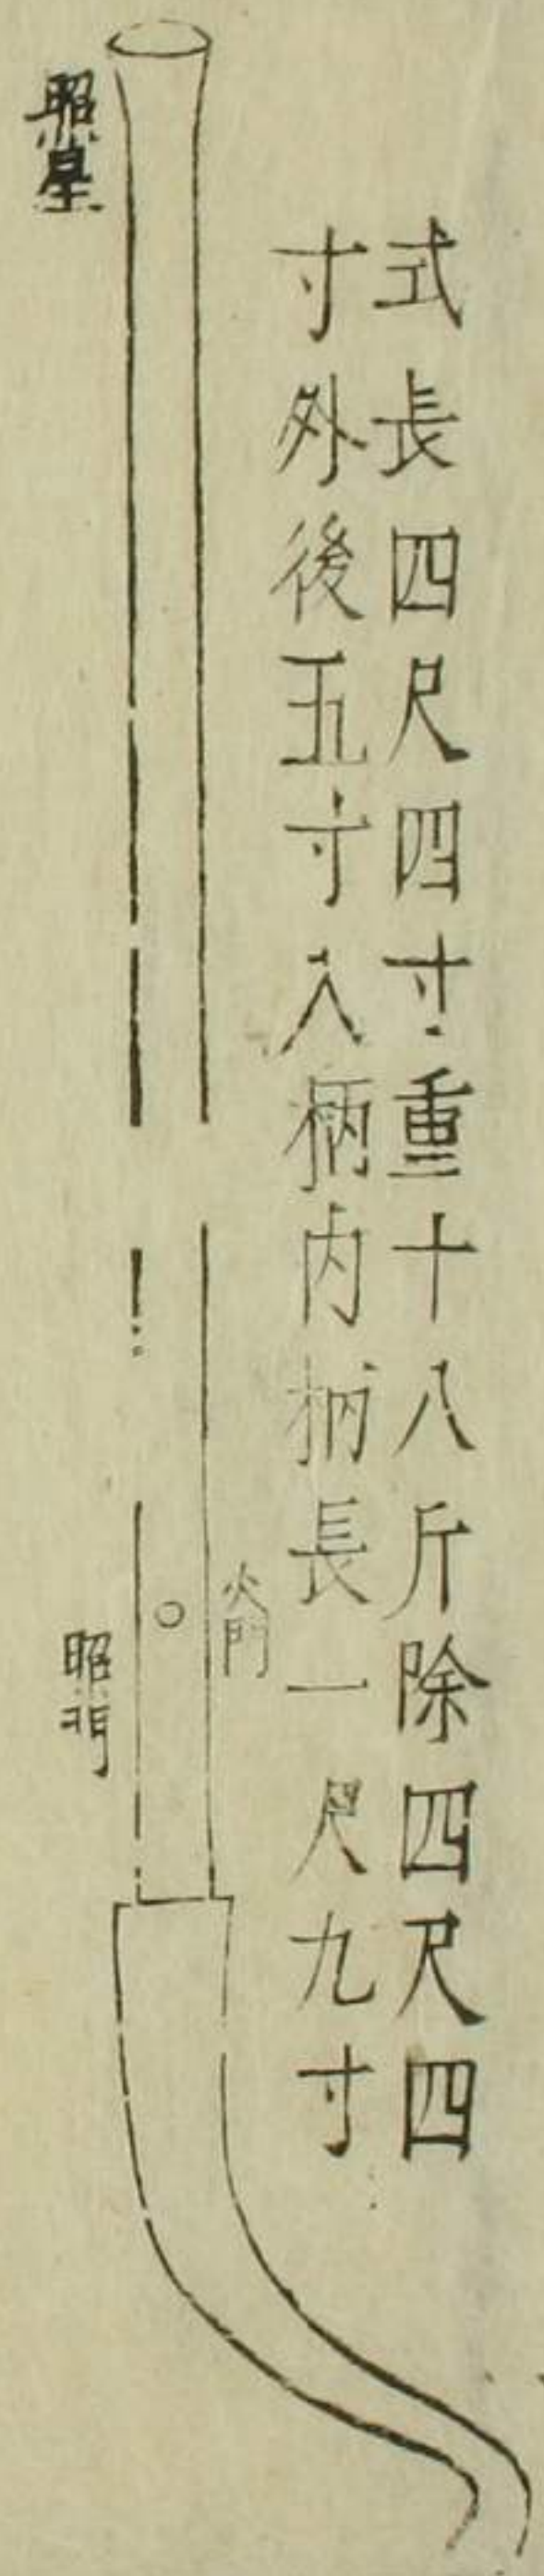 式長四尺四寸重十八斤除四尺四
寸外後五寸入柄内柄長一尺九寸
火門
照星
照門